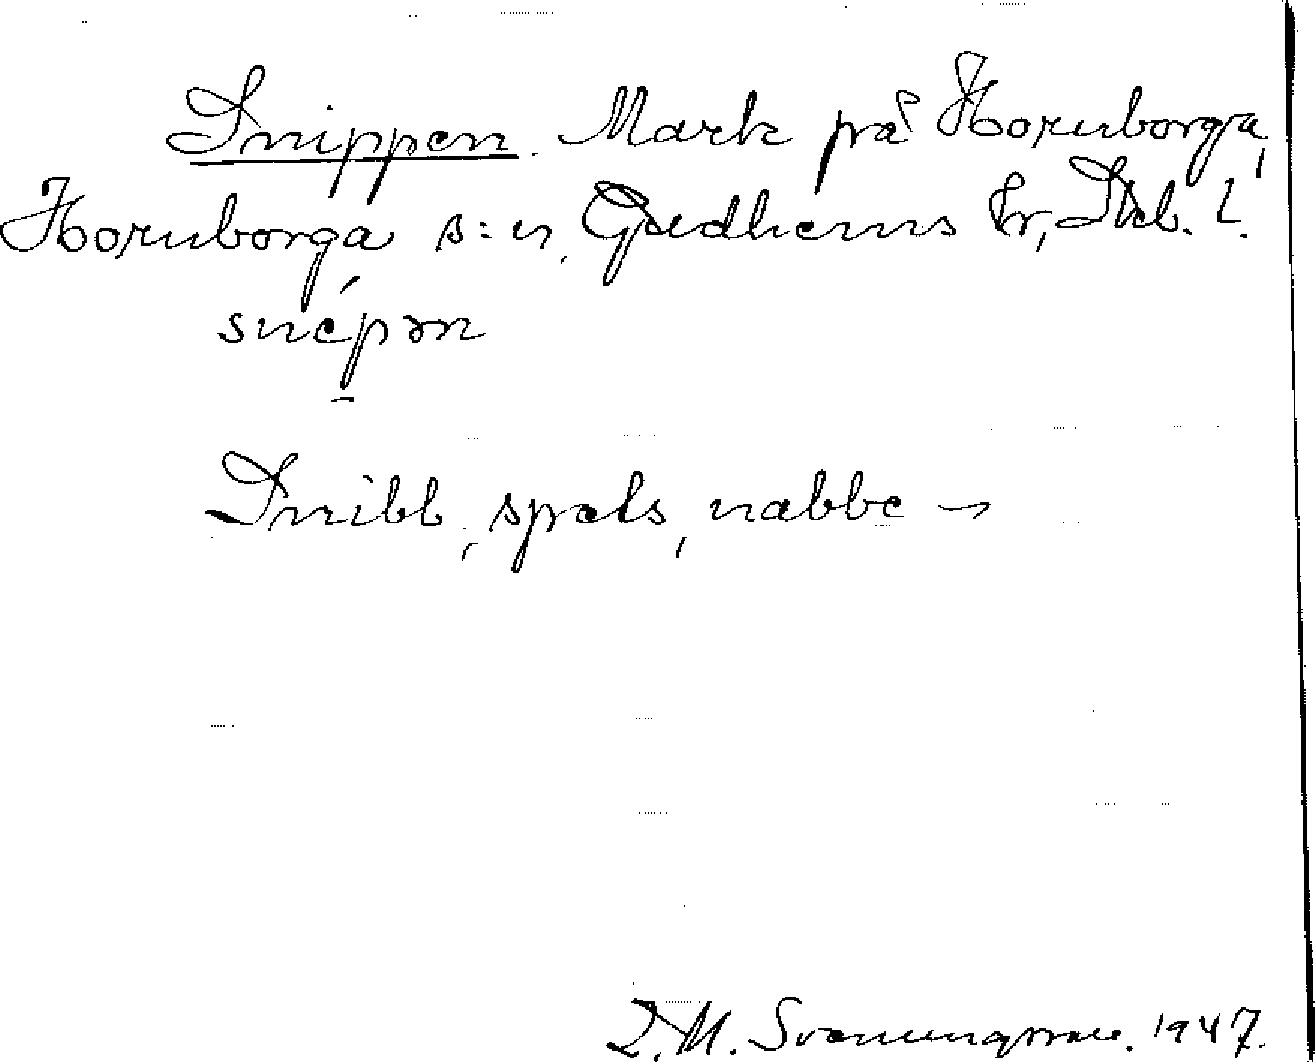 Snippen. Mark på Hornborga,
Hornborga s:n, Gudhems hr, Skb. l.
snépən
Snibb, spets, nabbe
L. M. Svenungsson. 1947.